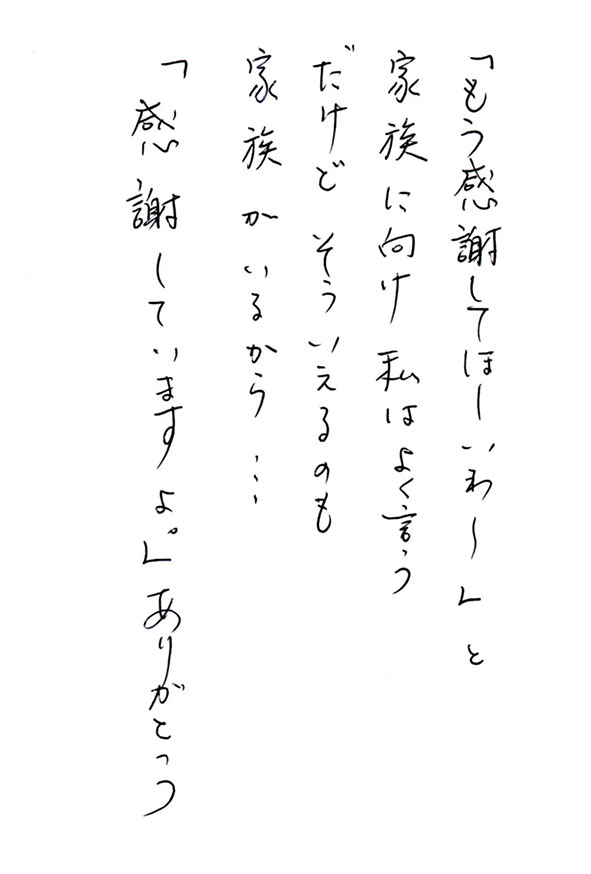 「もう感謝してほーいわ～」と
家族に向け私はよく言う
だけどそういえるのも
家族がいるから…
「感謝していますよ。」ありがとう